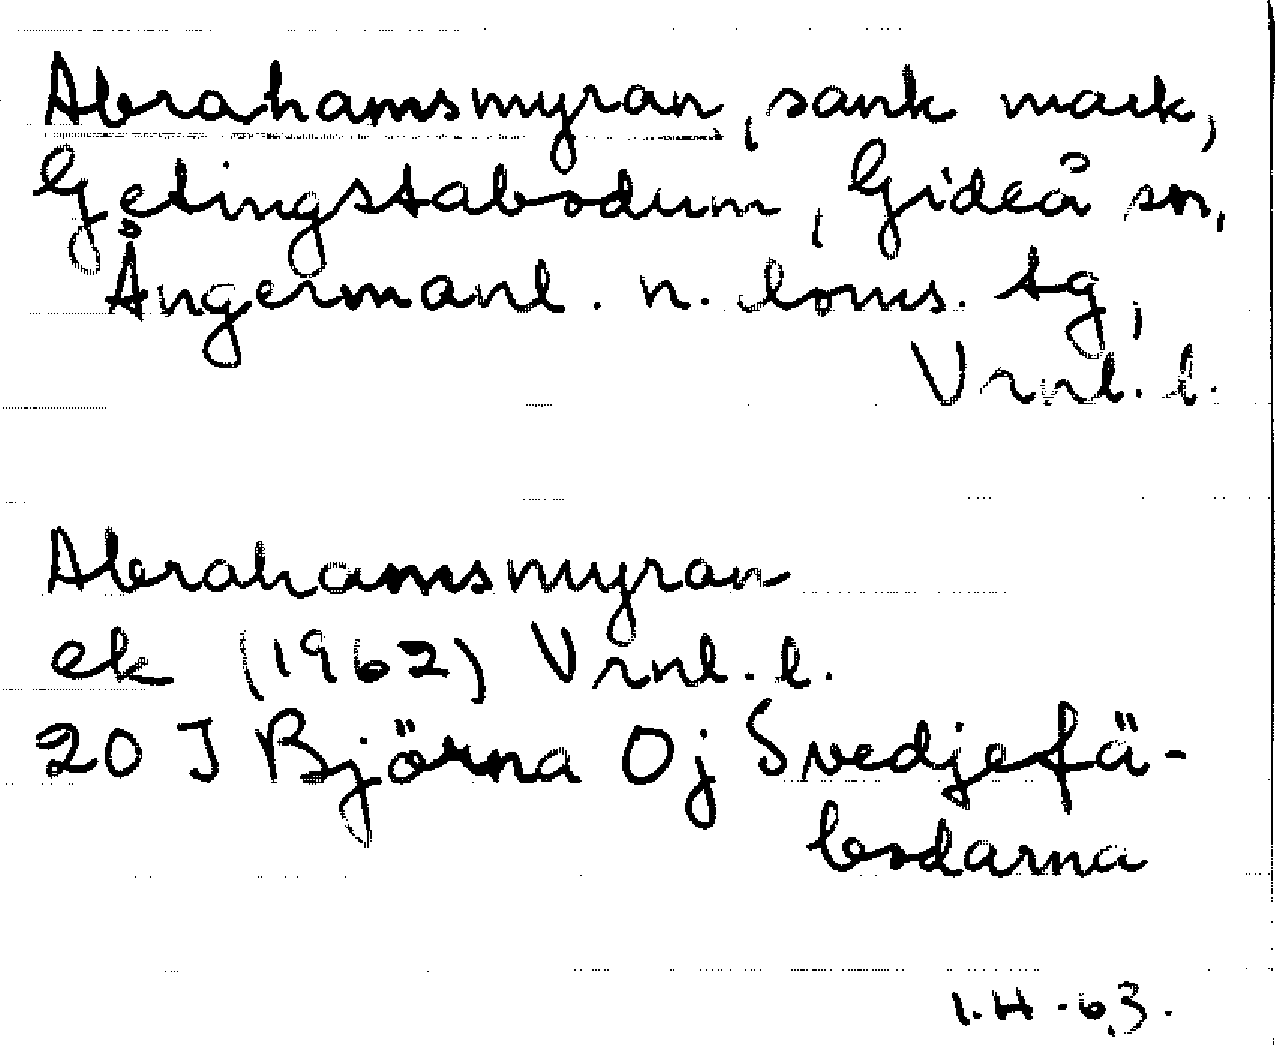 Abrahamsmyran, sank mark,
Getingstabodum, Gideå sn,
Ångermanl. n. doms. tg,
Vrnl. l.
Abrahamsmyran
ek (1962) Vrnl. l.
20 J Björna Oj Svedjefä-
bodarna
I.H -63.